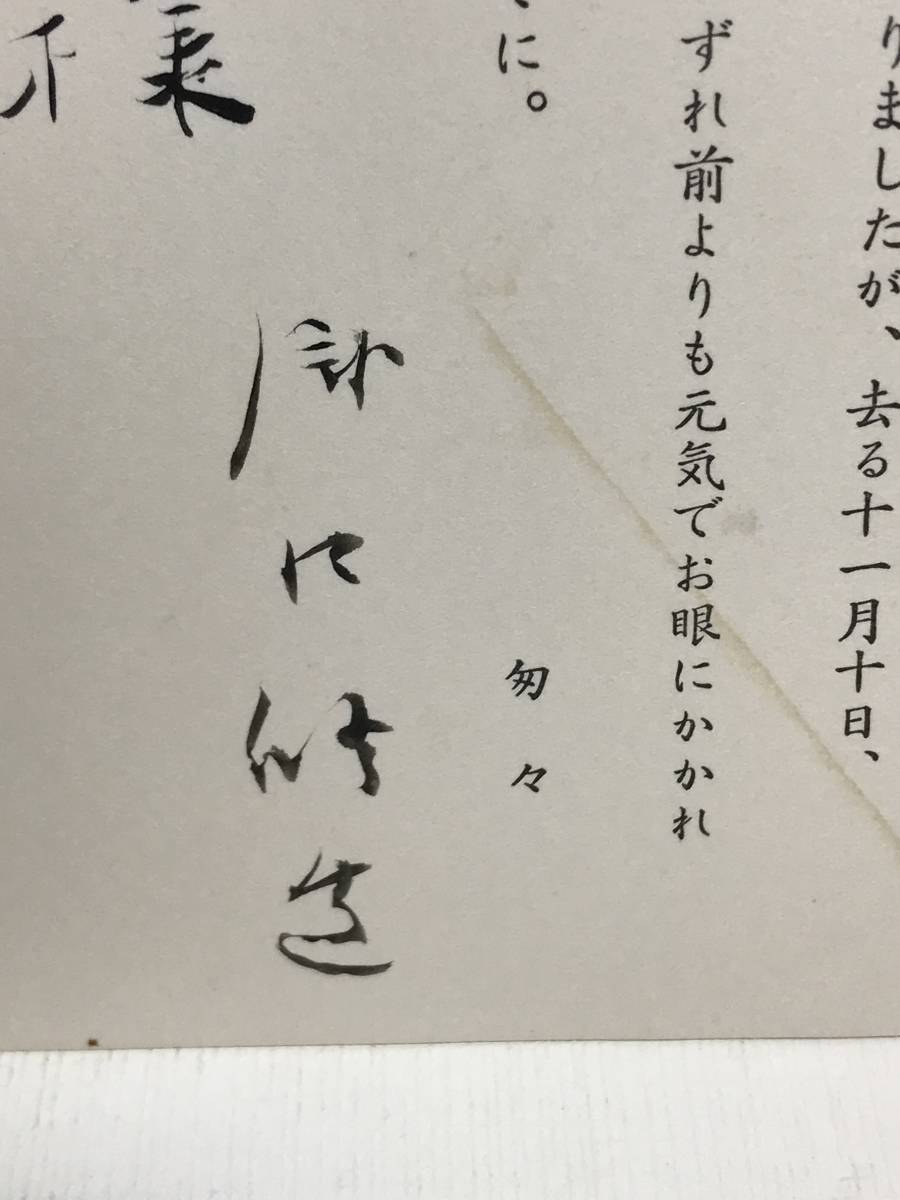 りましたが、去る十一月十日、
ずれ前よりも元気でお眼にかかれ
に。
匆々
瀧口修造